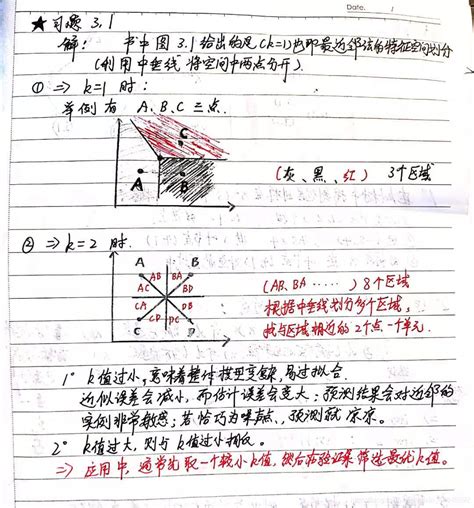 Date.
★ 习题 3.1
解： 书中图 3.1 给出的是(k=1)也即最近邻法的特征空间划分
(利用中垂线 将空间中两点分开).
① ⇒ k=1 时：
举例有 A、B、C 三点.
C
A B
(灰、黑、红) 3个区域
② ⇒ k=2 时.
A B
AB BA
AC BD
CA DB
CD DC
C D
(AB、BA ······) 8个区域
根据中垂线划分多个区域，
找与区域相近的2个点一个单元.
1° k值过小，意味着整体模型变复杂，易过拟合.
近似误差会减小，而估计误差会变大；预测结果会对近邻的
实例非常敏感；若恰巧为噪声点，预测就
2° k值过大，则与k值过小相反。
⇒ 应用中，通常先取一个较小k值，然后 验证集筛选最优k值。